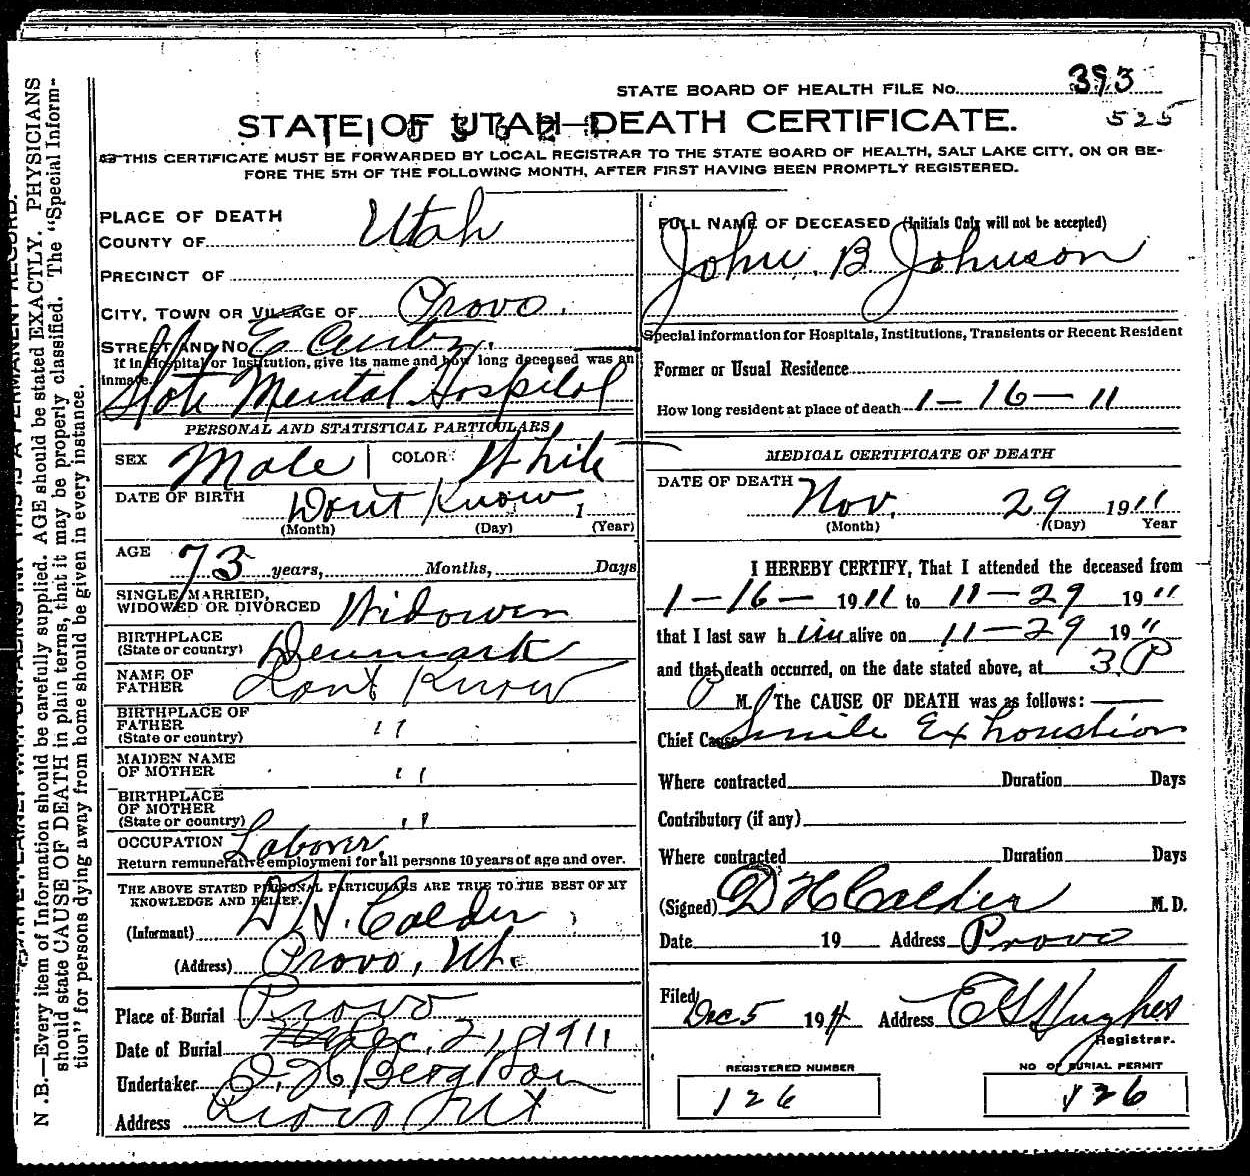 STATE BOARD OF HEALTH FILE No. 393
525
STATE OF UTAH—DEATH CERTIFICATE.
THIS CERTIFICATE MUST BE FORWARDED BY LOCAL REGISTRAR TO THE STATE BOARD OF HEALTH, SALT LAKE CITY, ON OR BE-
FORE THE 5TH OF THE FOLLOWING MONTH, AFTER FIRST HAVING BEEN PROMPTLY REGISTERED.
PLACE OF DEATH
COUNTY OF Utah
PRECINCT OF
CITY, TOWN OR VILLAGE OF Provo.
STREET AND No. E Center.
If in Hospital or Institution, give its name and how long deceased was an
inmate.
State Mental Hospital
PERSONAL AND STATISTICAL PARTICULARS
SEX Male COLOR White
DATE OF BIRTH Dont Know 1
(Month) (Day) (Year)
AGE 73 years, Months, Days
SINGLE, MARRIED,
WIDOWED OR DIVORCED Widower
BIRTHPLACE
(State or country) Denmark
NAME OF
FATHER Dont Know
BIRTHPLACE OF
FATHER
(State or country) " "
MAIDEN NAME
OF MOTHER " "
BIRTHPLACE
OF MOTHER
(State or country) " "
OCCUPATION Laborer.
Return remunerative employment for all persons 10 years of age and over.
THE ABOVE STATED PERSONAL PARTICULARS ARE TRUE TO THE BEST OF MY
KNOWLEDGE AND BELIEF.
(Informant) D H. Calder
(Address) Provo, Ut.
Place of Burial Provo
Date of Burial Dec. 2, 1911
Undertaker O. H Berg & Son
Address Provo Ut
FULL NAME OF DECEASED (Initials Only will not be accepted)
John. B Johnson
Special information for Hospitals, Institutions, Transients or Recent Resident
Former or Usual Residence
How long resident at place of death 1-16-11
MEDICAL CERTIFICATE OF DEATH
DATE OF DEATH Nov. 29 1911
(Month) (Day) Year
I HEREBY CERTIFY, That I attended the deceased from
1-16- 1911 to 11-29 1911
that I last saw him alive on 11-29 19"
and that death occurred, on the date stated above, at 3. P
M. The CAUSE OF DEATH was as follows:
Chief Cause Senile Exhoustion
Where contracted Duration Days
Contributory (if any)
Where contracted Duration Days
(Signed) D H Calder M.D.
Date 19 Address Provo
Filed Dec 5 1911 Address E G Hughes
Registrar.
REGISTERED NUMBER
126
NO OF BURIAL PERMIT
126
N. B.—Every item of Information should be carefully supplied. AGE should be stated EXACTLY. PHYSICIANS
should state CAUSE OF DEATH in plain terms, that it may be properly classified. The "Special Inform-
tion" for persons dying away from home should be given in every instance.